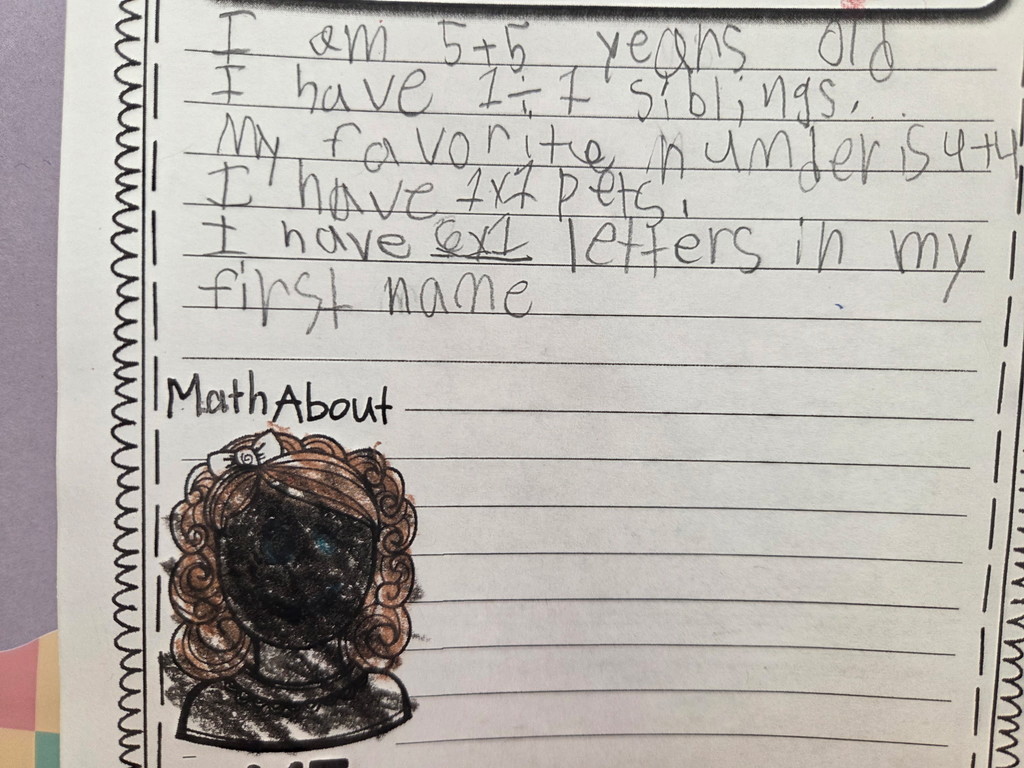 I am 5+5 years old
I have 1÷1 siblings.
My favorite number is 4+4
I have 1x1 pets.
I have 6x1 letters in my
first name
Math About